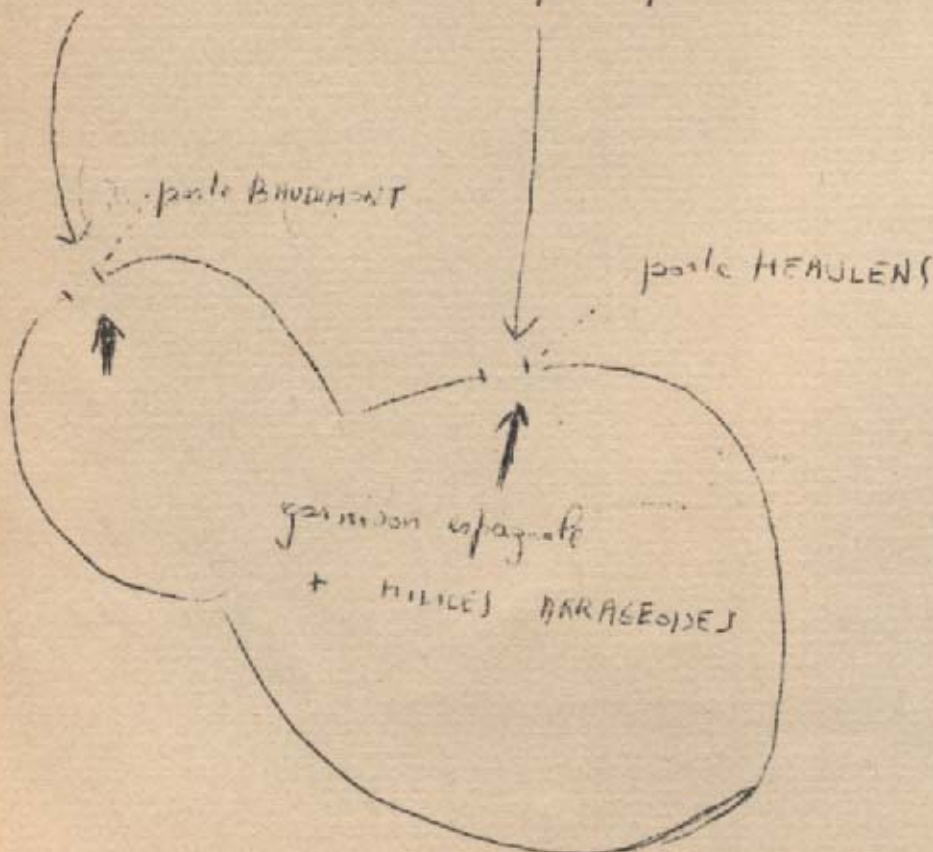 porte BAUDIMONT
porte HEAULENS
garnison espagnole
+ MILICES ARRAGEOISES